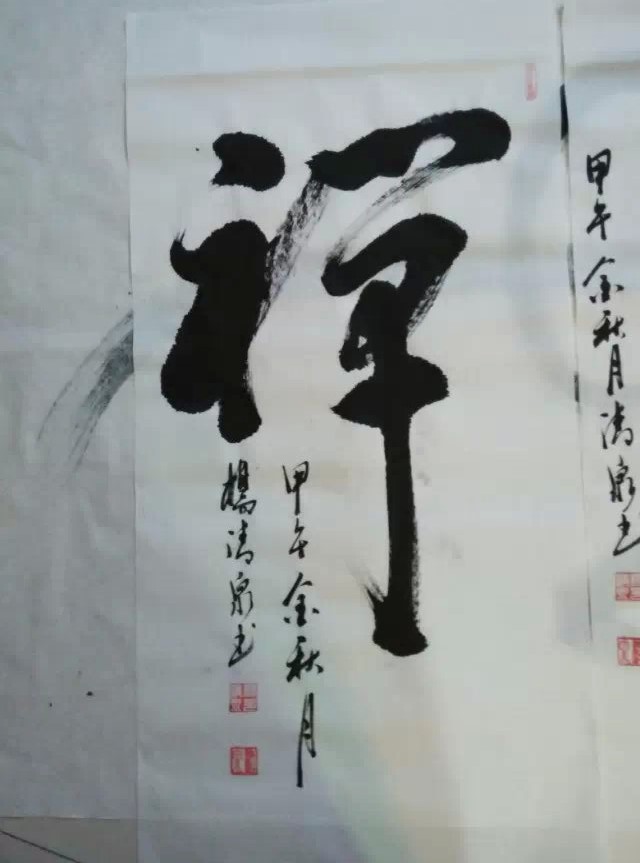 禅
甲午金秋月
楊清泉书
甲午金秋月清泉书